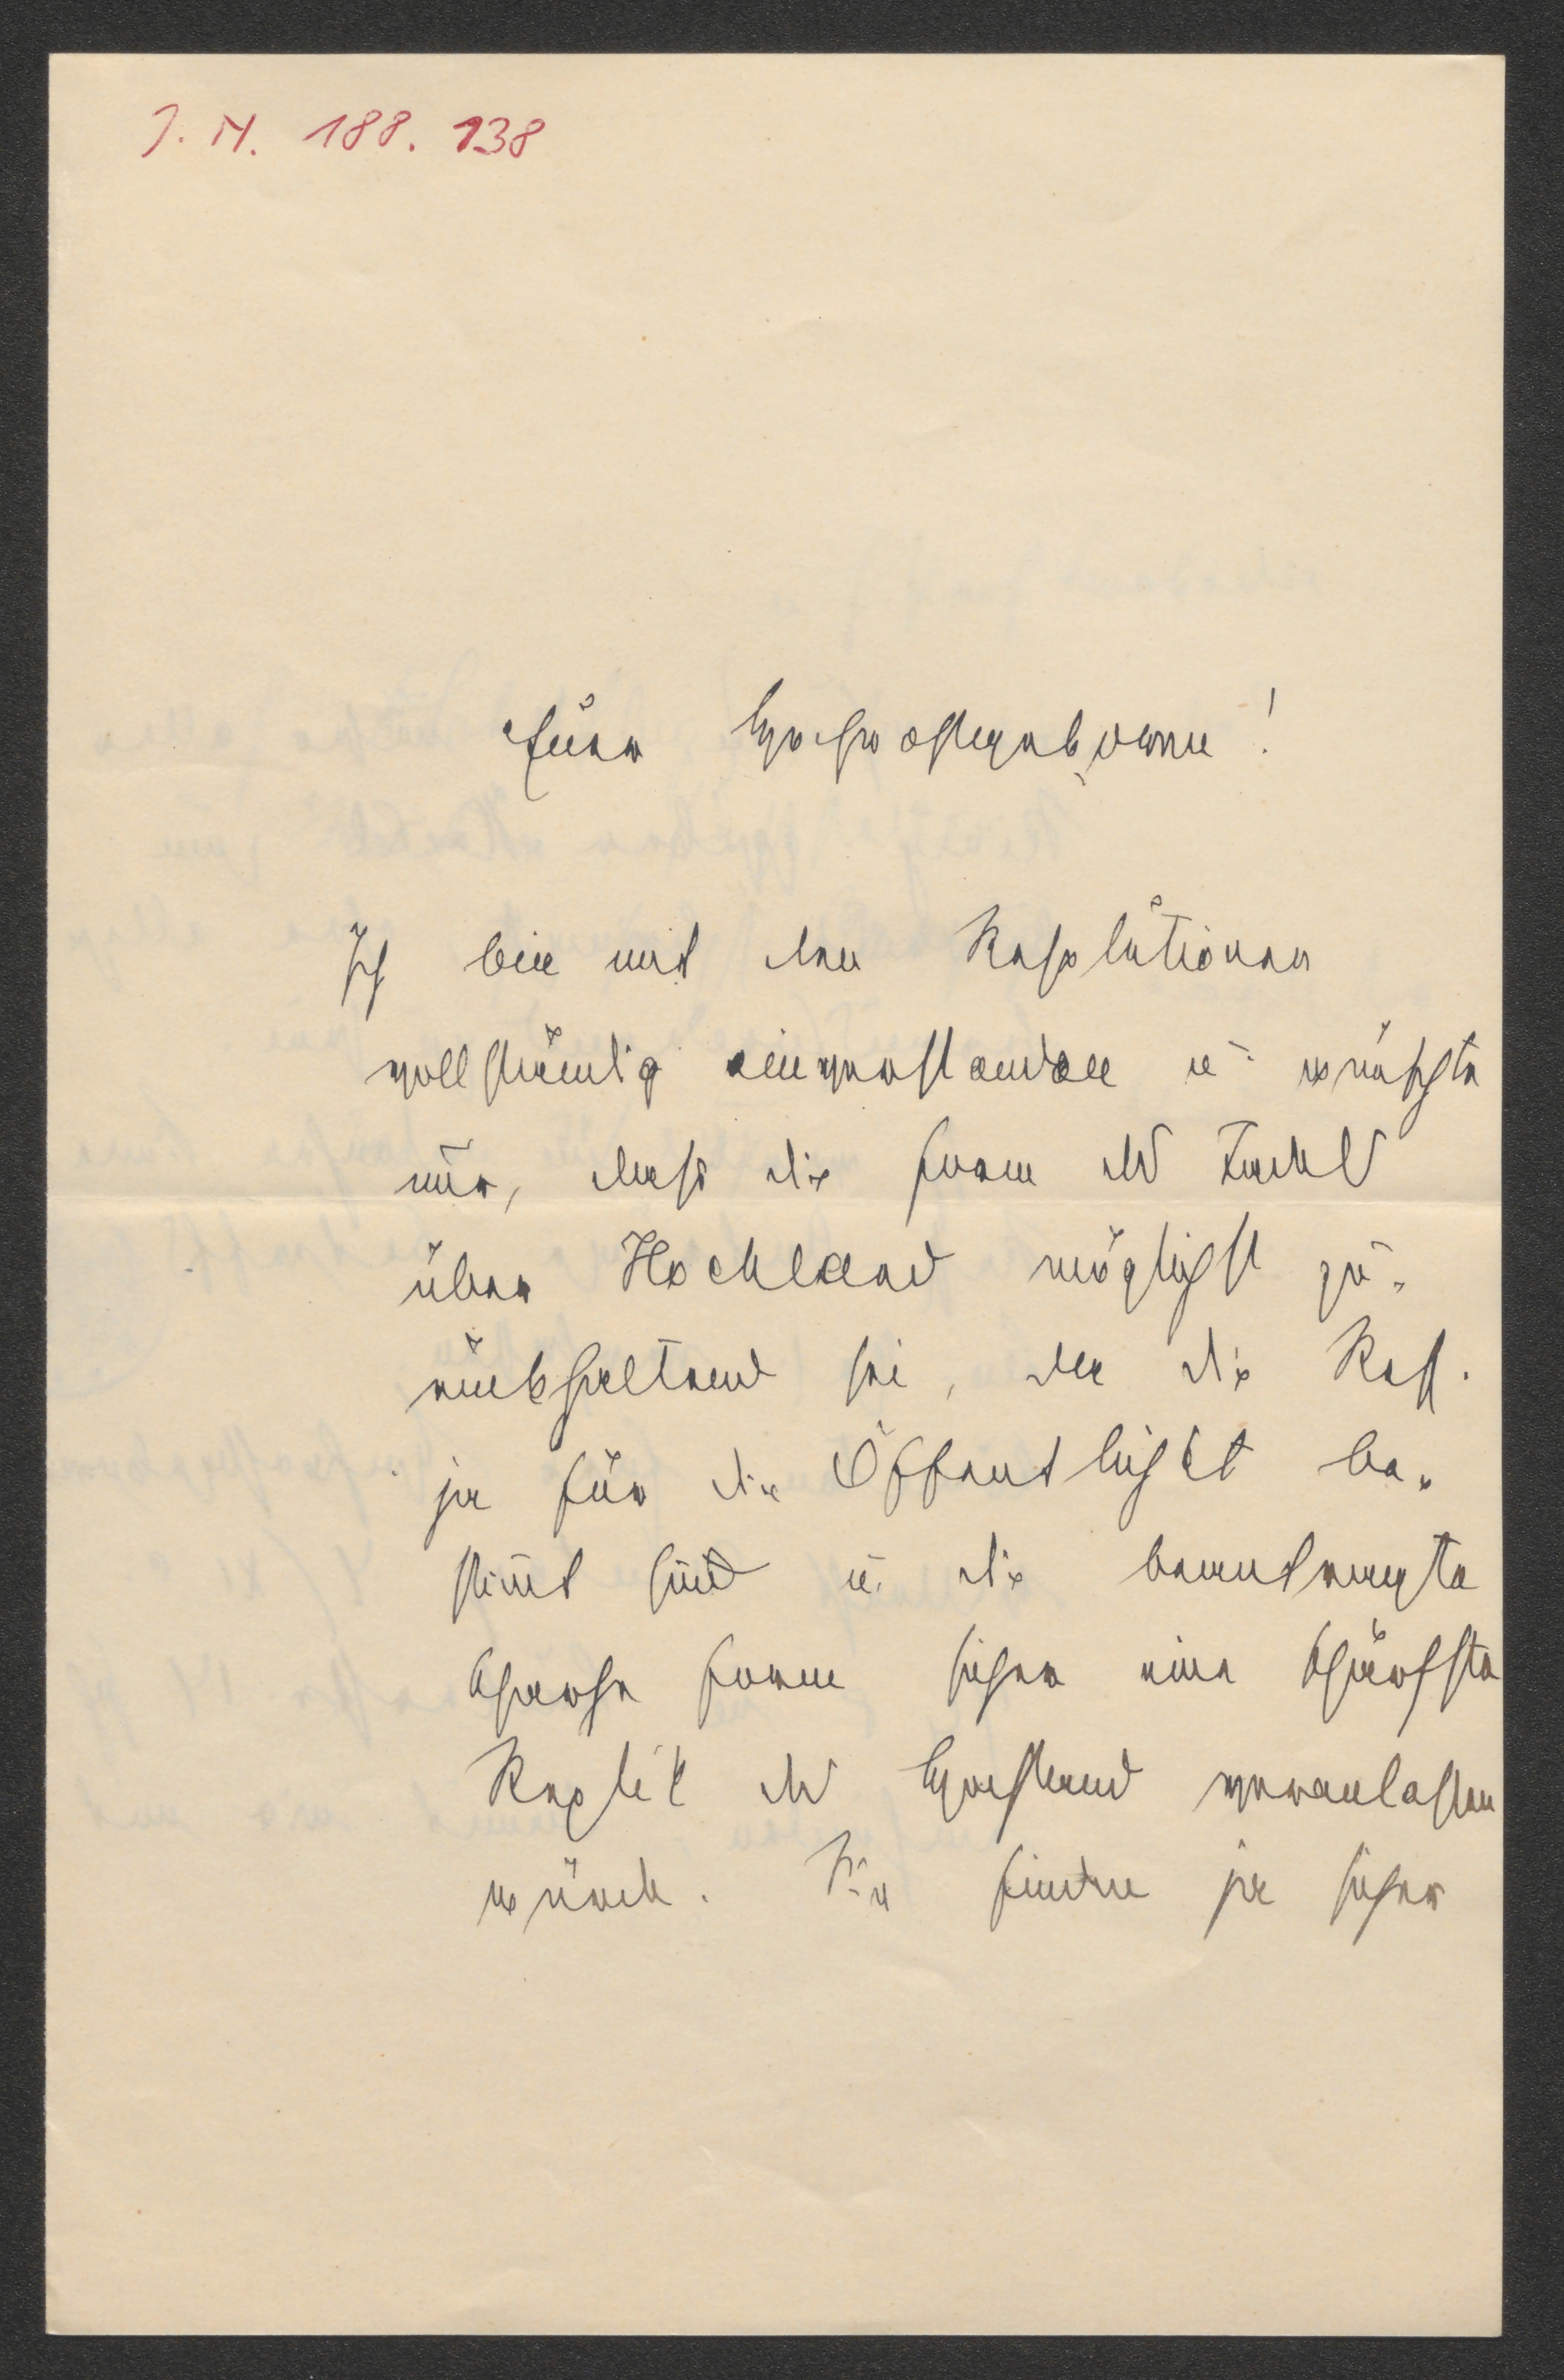 J. N. 188.138
Euer Hochwohlgeboren!
Ich bin mit den Resolutionen
vollständig einverstanden u. wünschte
nur, dass die Form des Tadels
über Hochland möglichst zu-
rückhaltend sei, da die Res.
ja für die Öffentlichkeit be-
stimt sind u. die beantragte
scharfe Form sicher eine schärfste
Replik des veranlassen
würde. Sie finden ja sicher